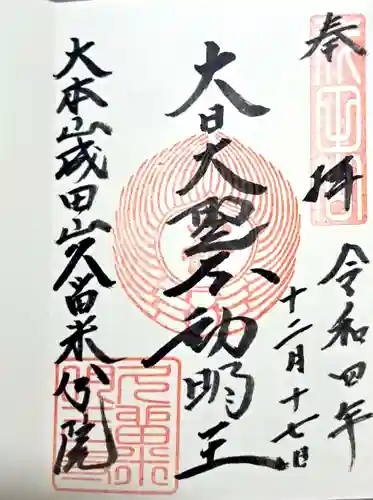 奉拝
令和四年
十二月十七日
大日大聖不動明王
大本山成田山久留米分院